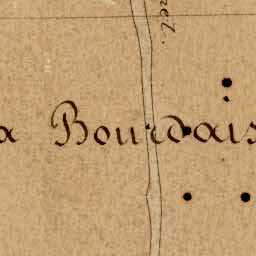 a Bourdais